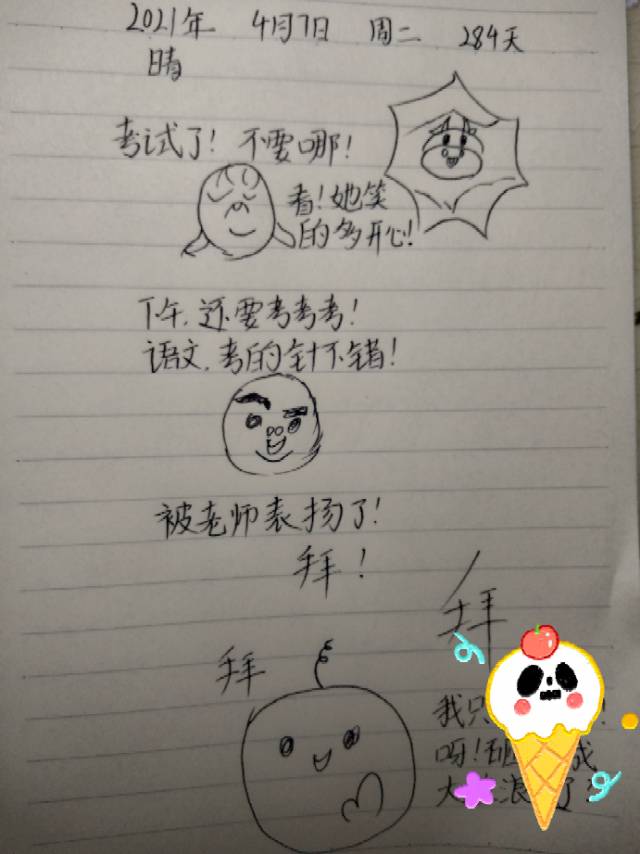 2021年 4月7日 周二 284天
晴
考试了！不要哪！
看！她笑
的多开心！
下午，还要考考考！
语文，考的针不错！
被老师表扬了！
拜！
拜
拜
我只
呀！班 成
大 浪 了